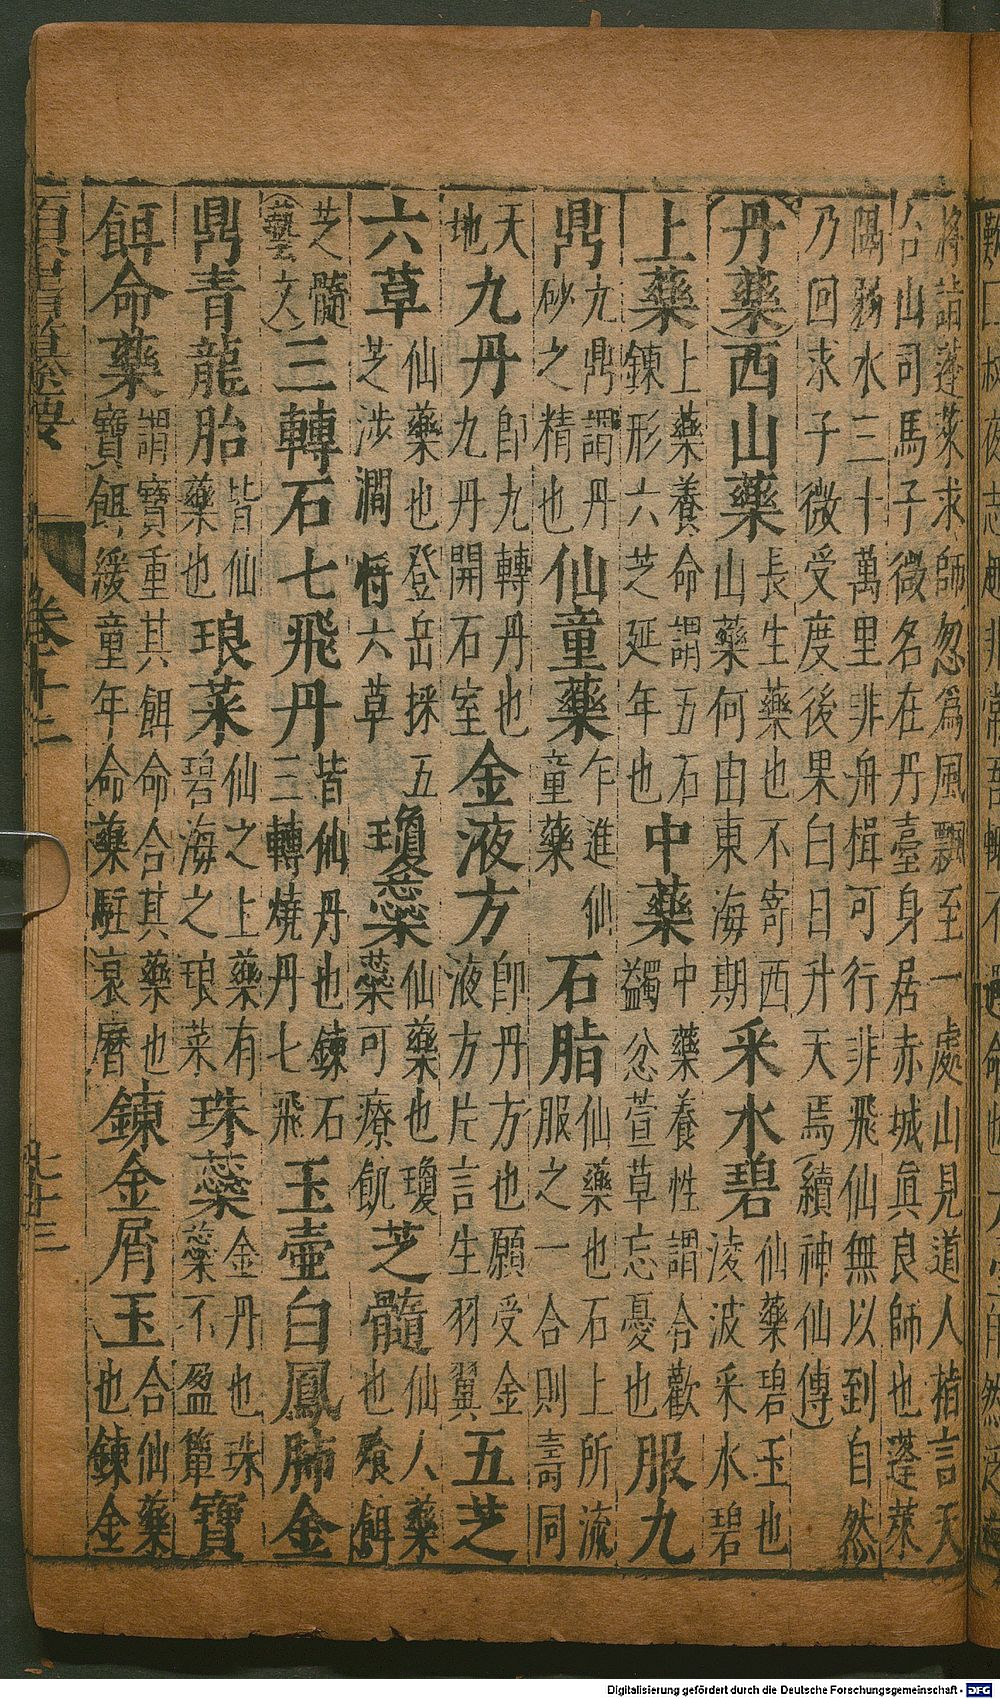 將詣蓬萊求師忽爲風飄至一處山見道人指言天
台山司馬子微名在丹臺身居赤城眞良師也蓬萊
隔弱水三十萬里非舟楫可行非飛仙無以到自然
乃回求子微受度後果白日升天焉(續神仙傳)
(丹藥)西山藥長生藥也不寄西山藥何由東海期采水碧仙藥碧玉也淩波采水碧
上藥上藥養命謂五石鍊形六芝延年也中藥中藥養性謂合歡蠲忿萱草忘憂也服九
鼎九鼎謂丹砂之精也仙童藥乍進仙童藥石脂仙藥也石上所流服之一合則壽同
天地九丹卽九轉丹也九丹開石室金液方卽丹方也願受金液方片言生羽翼五芝
六草仙藥也登岳採五芝涉澗將六草瓊蕊仙藥也瓊蕊可療飢芝髓仙人藥也飱餌
芝髓(藝文)三轉石七飛丹皆仙丹也鍊石三轉燒丹七飛玉壺白鳳肺金
鼎青龍胎皆仙藥也琅菜仙之上藥有碧海之琅菜珠蕊金丹也珠蕊不盈簞寶
餌命藥謂寶重其餌命合其藥也寶餌緩童年命藥駐衰曆鍊金屑玉合仙藥也鍊金
卷十二
七十三
Digitalisierung gefördert durch die Deutsche Forschungsgemeinschaft - DFG